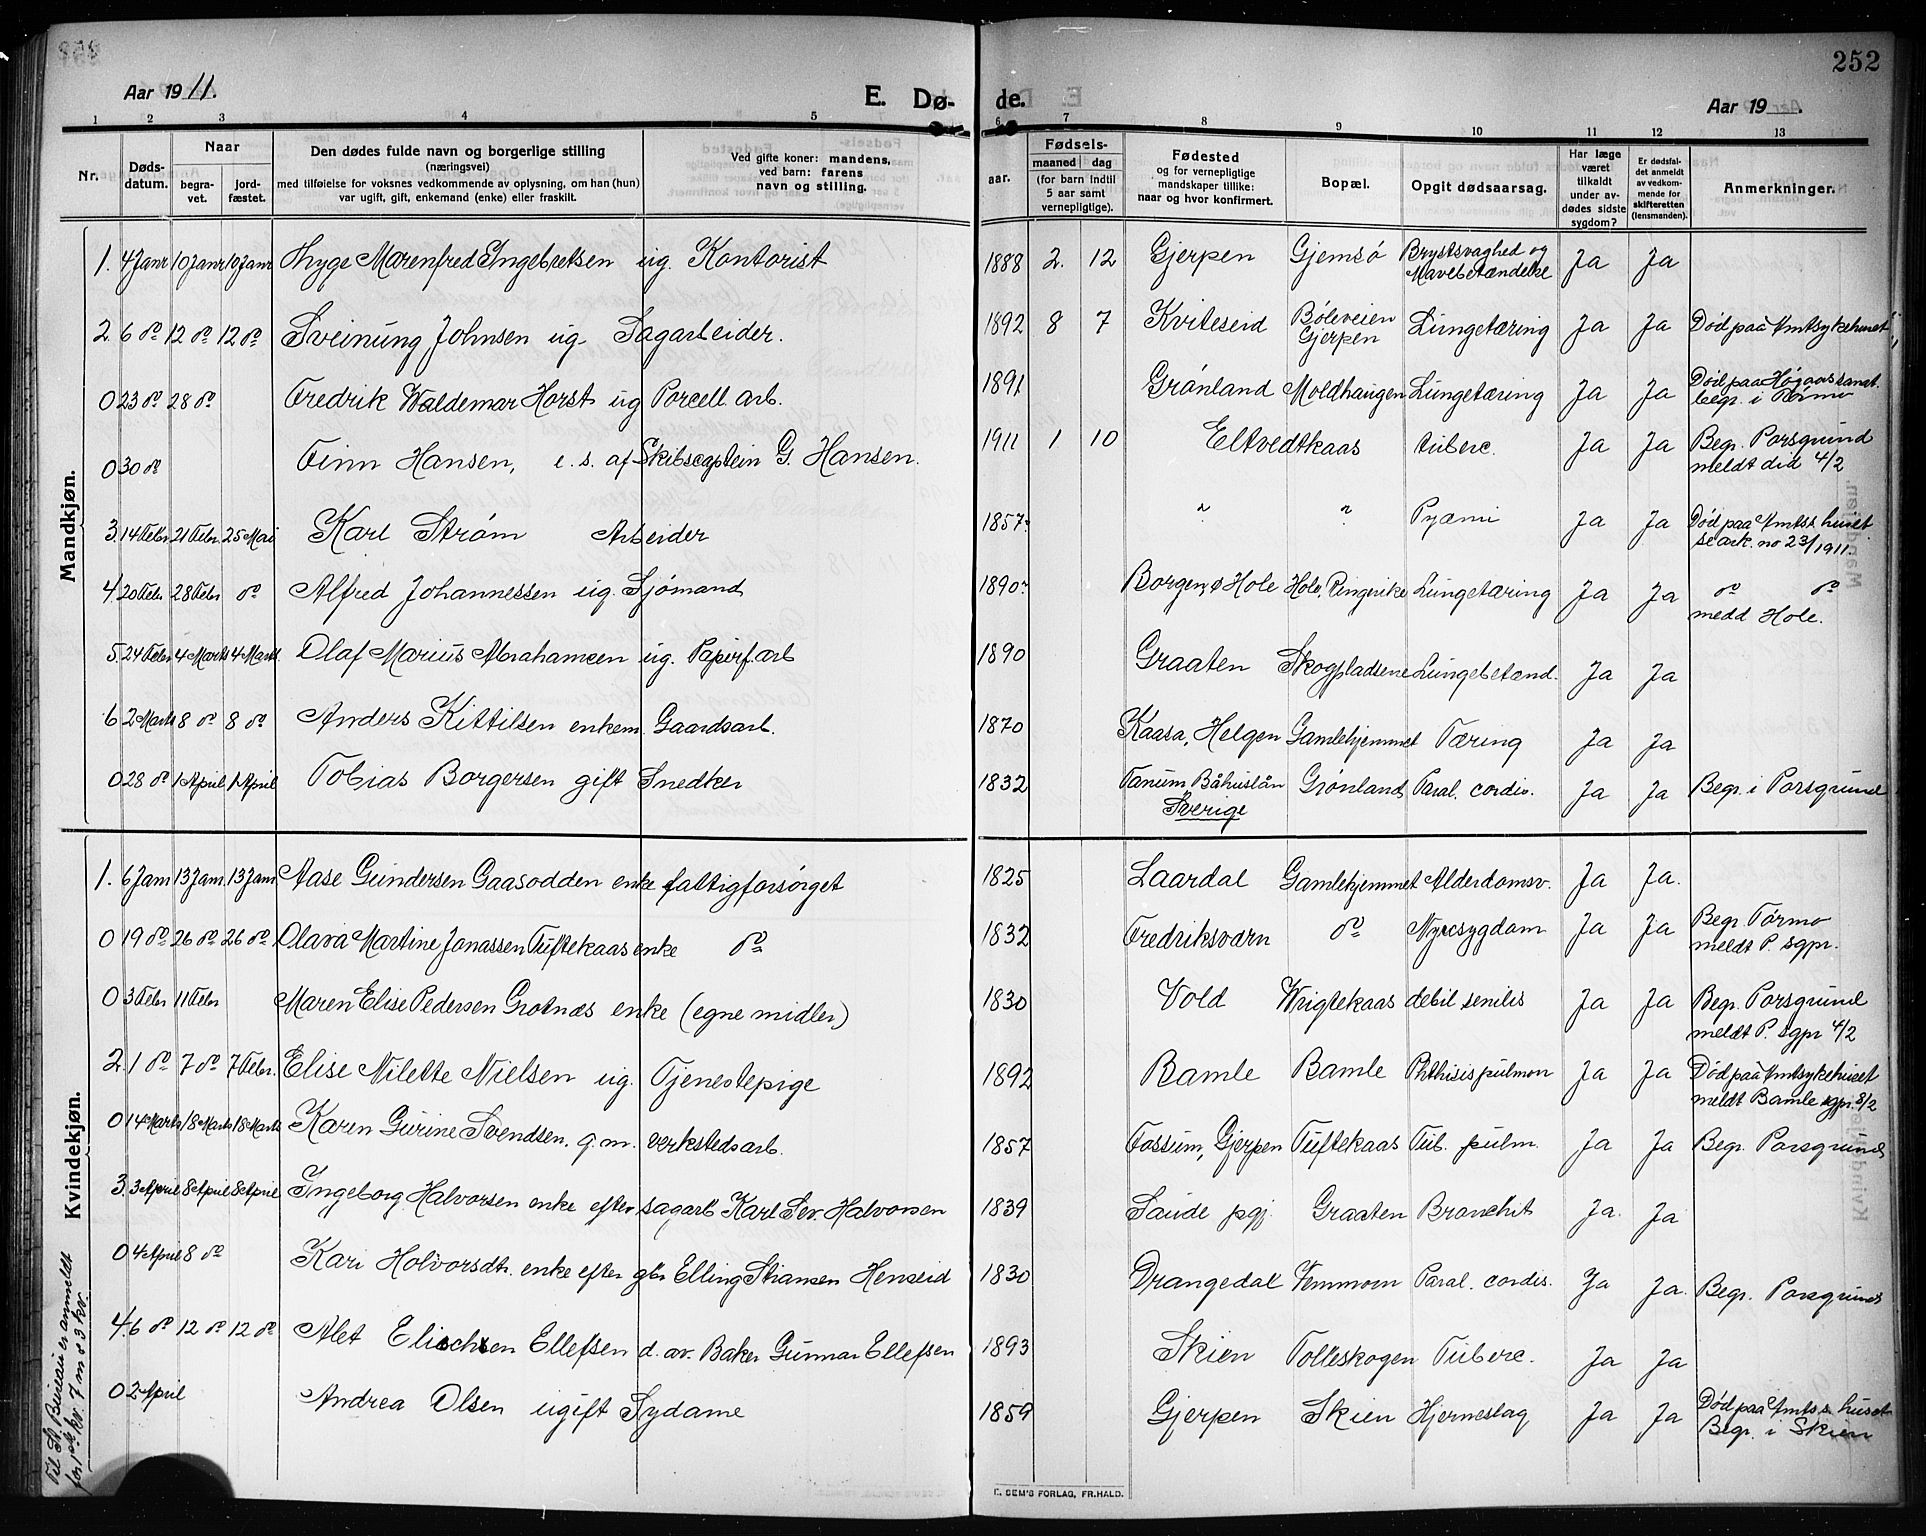 252
Aar 1911.
E. Dø- de.
Aar 19 .
1 2 3 4 5 6 7 8 9 10 11 12 13
Nr.
Døds-
datum.
Naar
begra-
vet.
jord-
fæstet.
Den dødes fulde navn og borgerlige stilling
(næringsvei)
med tilføielse for voksnes vedkommende av oplysning, om han (hun)
var ugift, gift, enkemand (enke) eller fraskilt.
Ved gifte koner: mandens,
ved barn: farens
navn og stilling.
aar.
Fødsels-
maaned dag
(for barn indtil
5 aar samt
vernepligtige).
Fødested
og for vernepligtige
mandskaper tillike:
naar og hvor konfirmert.
Bopæl.
Opgit dødsaarsag.
Har læge
været
tilkaldt
under av-
dødes sidste
sygdom?
Er dødsfal-
det anmeldt
av vedkom-
mende for
skifteretten
(lensmanden).
Anmerkninger.
Mandkjøn.
1. 4 Janr 10 Janr 10 Janr Thyge Marenfred Engebretsen ug. Kontorist 1888 2. 12 Gjerpen Gjemsø Brystsvaghed og Mavebetændelse Ja Ja
2. 6 do 12 do 12 do Sveinung Johnsen ug. Sagarbeider. 1892 8 7 Kviteseid Bøleveien Gjerpen Lungetæring Ja Ja Død paa Amtsykehuset
0 23 do 28 do Fredrik Waldemar Horst ug Porcell. arb. 1891 Grønland Moldhaugen Lungetæring Ja Ja Død paa Høgaas sanat. begr. i Tørmo
0 30 do Finn Hansen, e. s. af Skibscaptein G. Hansen. 1911 1 10 Eltvedtkaas tuberc. Ja Ja Begr. Porsgrund meldt did 4/2
3. 14 Febr 21 Febr. 25 Mai Karl Strøm Arbeider 1857? ? ? Pyæmi Ja Ja Død paa Amtss huset se ark. no 23/1911.
4. 20 Febr. 28 Febr do Alfred Johannessen ug. Sjømand 1890? Borgen, Hole Hole, Ringerike Lungetæring Ja Ja do do medd Hole.
5. 24 Febr 4 Marts 4 Marts. Olaf Marius Abrahamsen ug. Papirf. arb 1890 Graaten Skogpladsene Lungebetænd. Ja Ja
6 2 Marts 8 do 8 do Anders Kittilsen enkem. Gaardsarb. 1870 Kaasa, Helgen Gamlehjemmet Tæring Ja Ja
0 28 do 1 April 1 April Tobias Borgersen gift Snedker 1832 Tanum, Båhuslån Sverige Grønland Paral. cordis. Ja Ja Begr. i Porsgrund
Kvindekjøn.
1. 6 Janr 13 Janr. 13 Janr Aase Gundersen Gaasodden enke fattigforsørget 1825 Laardal Gamlehjemmet Alderdomsv. Ja Ja.
0 19 do 26 do 26 do Olava Martine Jonassen Tuftekaas enke do 1832 Fredriksværn do Nyresygdom Ja Ja Begr. Tørmo meldt P. sgpr.
0 3 Febr 11 Febr Maren Elise Pedersen Grotnæs enke (egne midler) 1830 Vold Wrigtekaas debil senilis Ja Ja Begr. Porsgrund meldt P. sgpr 4/2
2. 1 do 7 do 7 Febr. Elise Nilette Nielsen ug. Tjenestepige 1892 Bamle Bamle Phthisis pulmon Ja Ja Død paa Amtsykehuset meldt Bamle sgpr. 8/2
0 14 Marts 18 Marts 18 Marts Karen Gurine Svendsen. g. m. verkstedsarb. 1857 Fossum, Gjerpen Tuftekaas Tub. pulm. Ja Ja Begr. Porsgrund
3. 3 April 8 April 8 April Ingeborg Halvorsen enke efter sagarb Karl Sev. Halvorsen 1839 Saude pgj. Graaten Bronchit Ja. Ja
0 4 April 8 do Kari Holvorsdtr. enke efter gbr Elling Stiansen Henseid 1830 Drangedal Femmoen Paral. cordis. Ja Ja. Begr. Porsgrund
4. 6 do 12 do 12 do Alet Ellefsen d. av. Baker Gunnar Ellefsen 1893 Skien Folleskogen Tuberc. Ja Ja
0 2 April Andrea Olsen ugift Sydame 1859 Gjerpen Skien Hjerneslag Ja Ja Død paa Amtss huset Begr. i Skien
Til St. Bureau er anmeldt
for 1ste kv. 7 m 8 3 kv.
E. SEM'S FORLAG, FR.HALD.